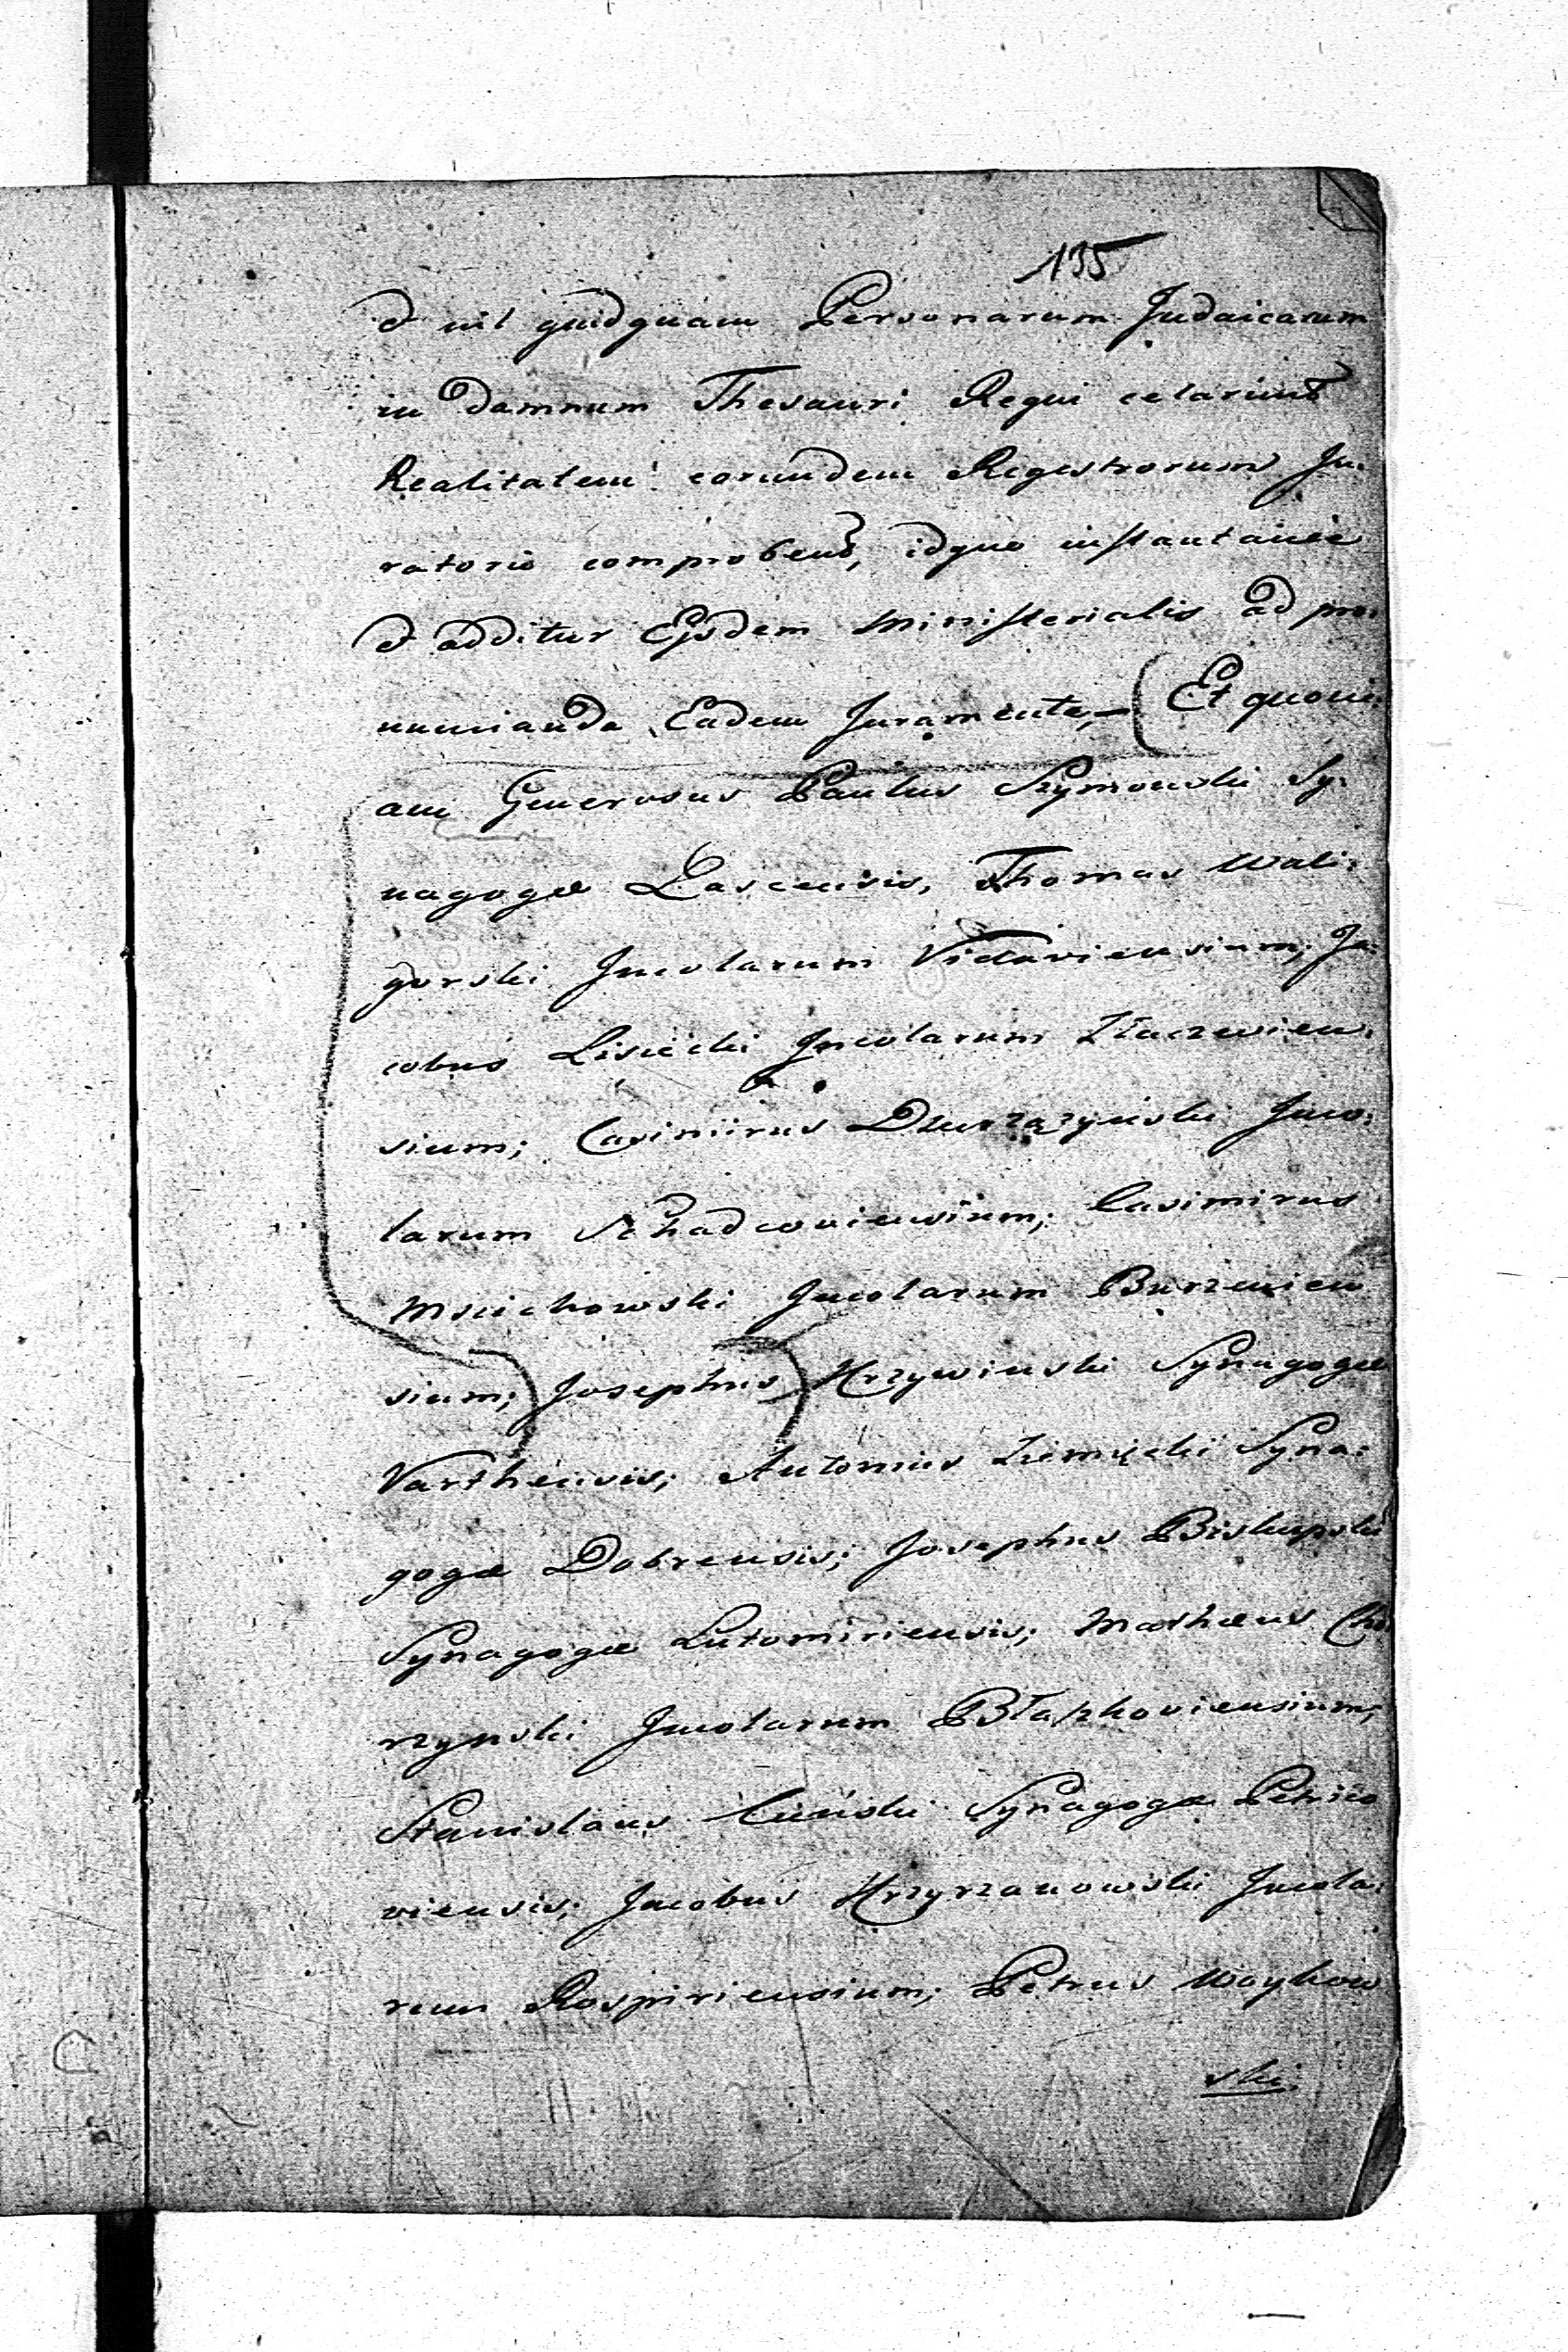 135
& nil quidquam Personarum Judaicarum
in damnum Thesauri Regni celarint
Realitatem eorumdem Regestrorum Ju:
ratorie comprobent, idque instantanee
& additur Ejsdem Ministerialis ad pro:
nuncianda Eadem Juramenta,– (Et quoni:
am Generosus Paulus Szymonski Sy:
nagogæ Lascensis, Thomas Wali:
gorski Incolarum Vidaviensium; Ja:
cobus Lisiecki Incolarum Złoczewien:
sium; Casimirus Inco:
larum Schadcoviensium; Casimirus
Mnichowski Incolarum Burzenien
sium; Josephus Krzywinski Synagogæ
Varthensis; Antonius Ziemięcki Syna:
gogæ Dobrensis; Josephus Biskupski
Synagogæ Lutomiriensis; Mathæus Cho
rzynski Incolarum Błaszkoviensium;
Stanislaus Synagogæ Petrico
viensis; Jacobus Krzyzanowski Incola:
rum Rospiriensium; Petrus Woykow
ski